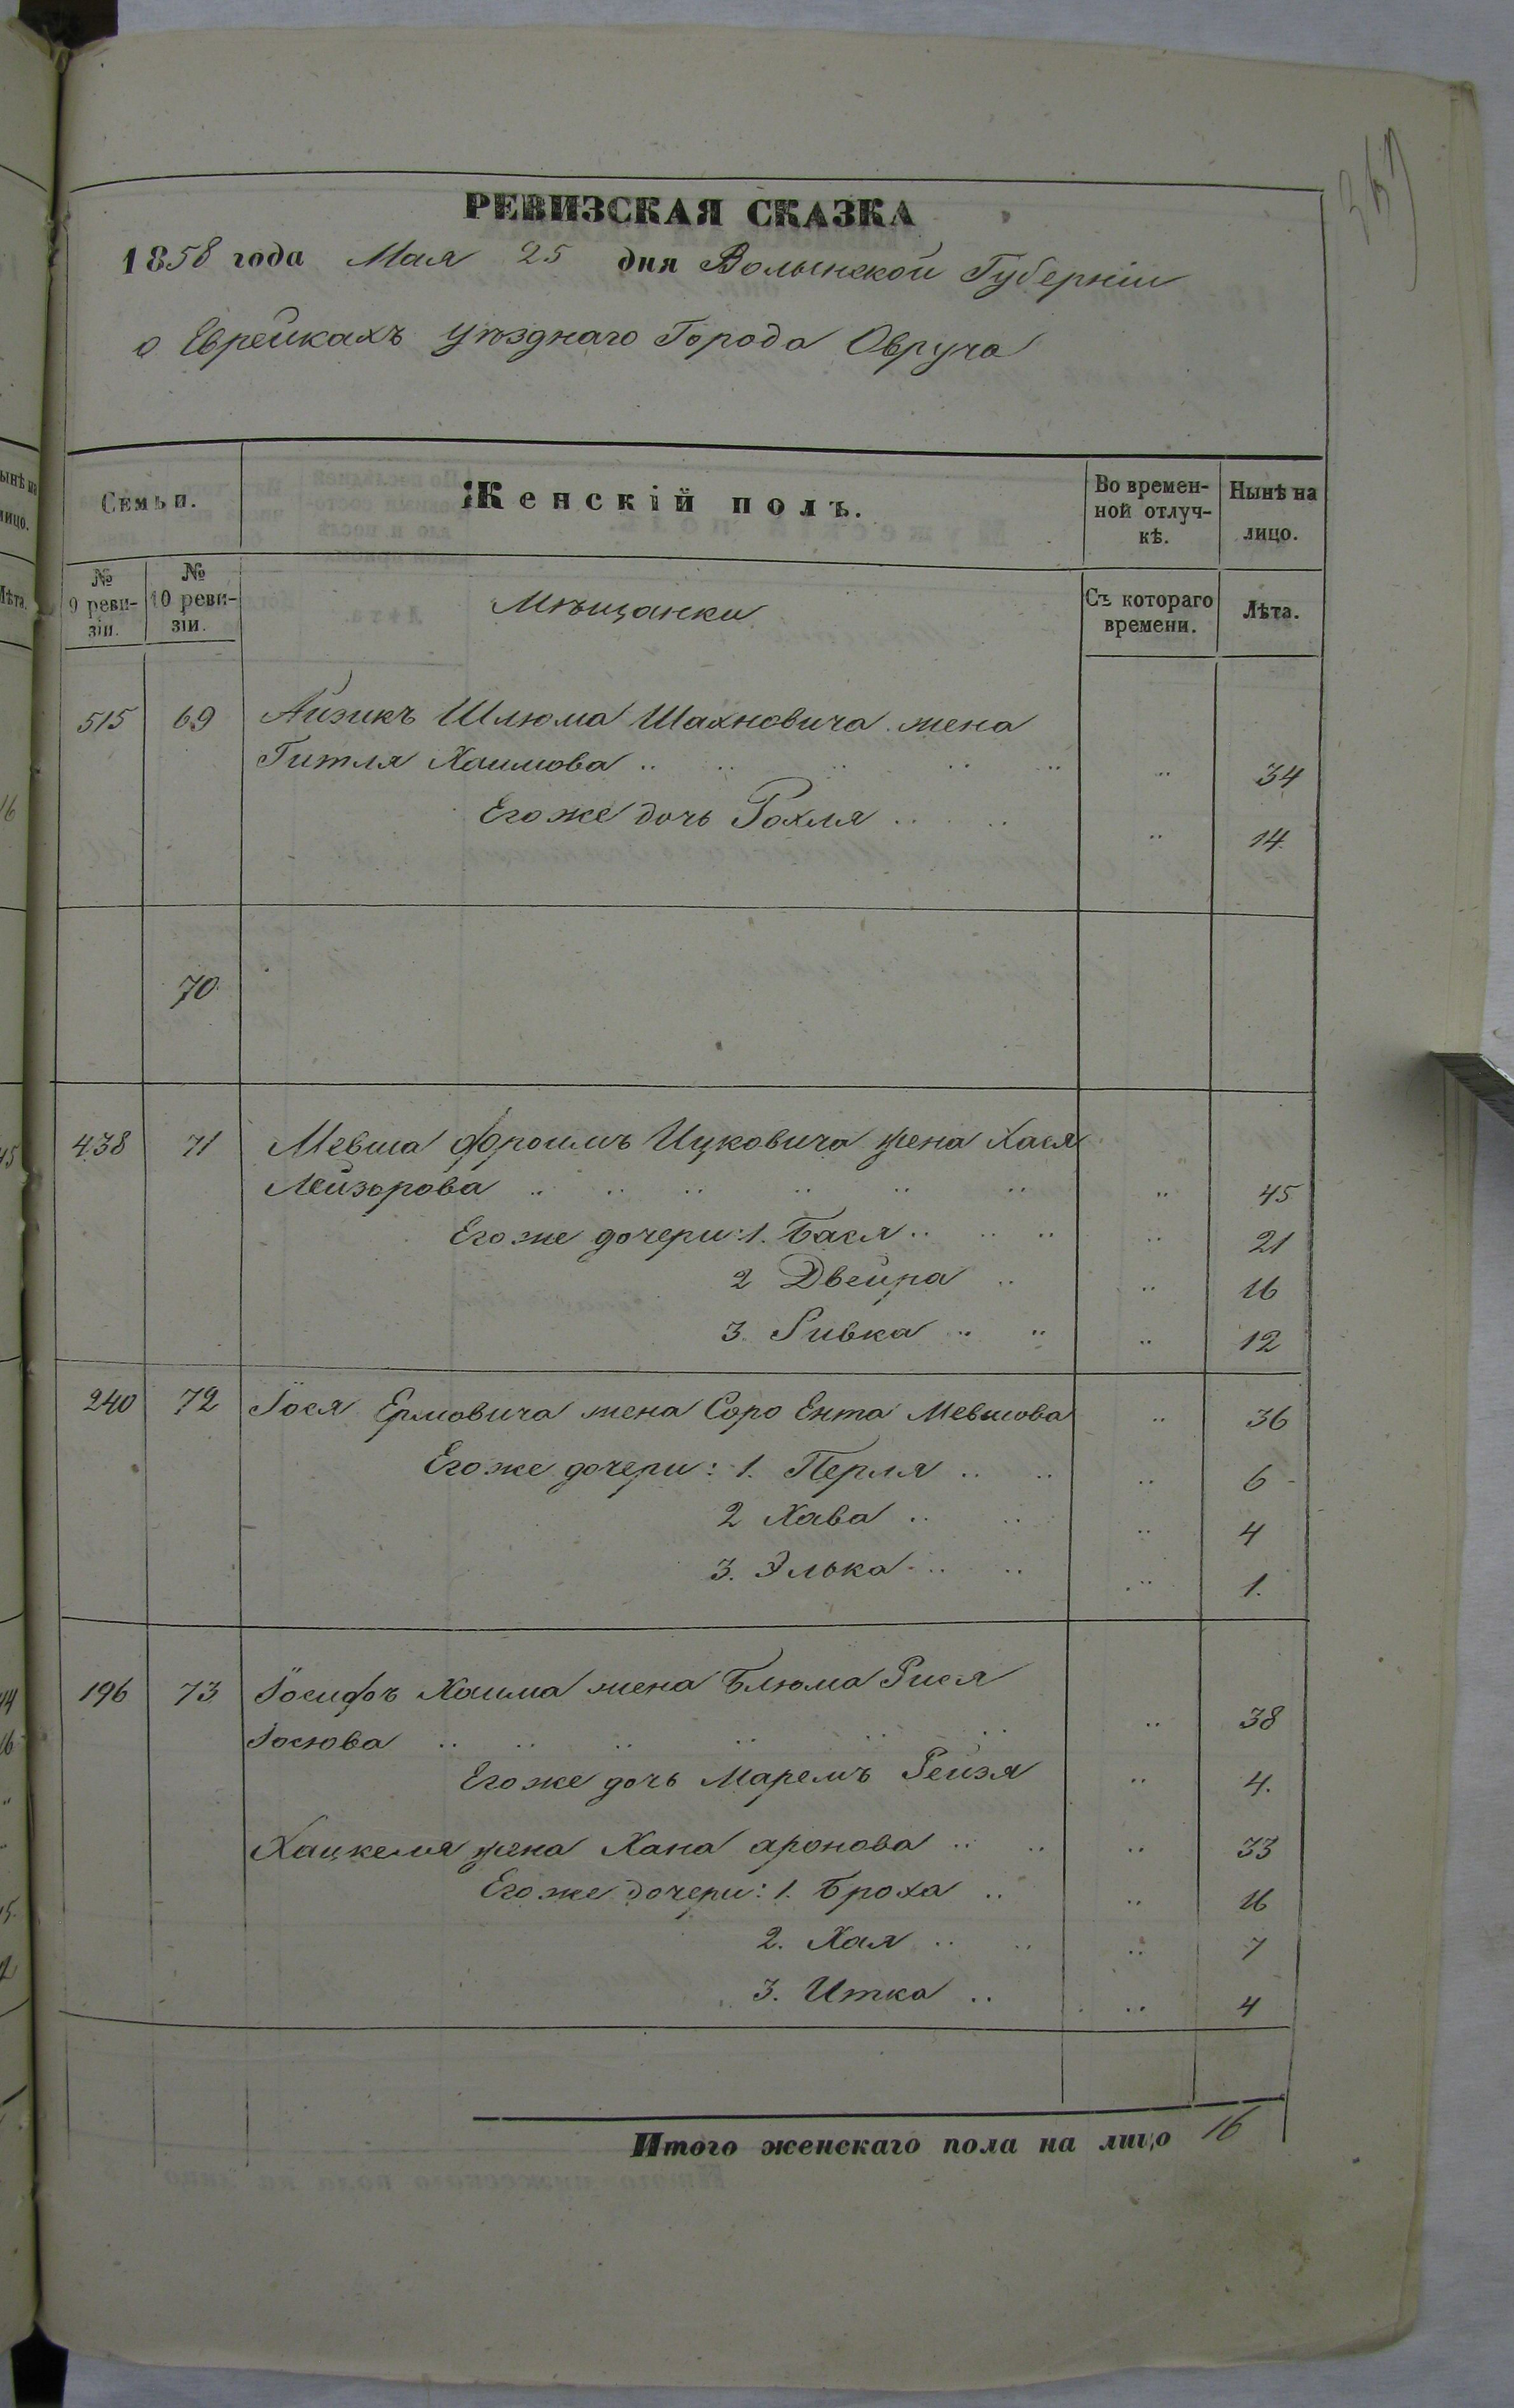 367
РЕВИЗСКАЯ СКАЗКА
1858 года Мая 25 дня Волынской Губерніи
о Еврейкахъ уѣзднаго Города Овруча
Семьи. Женскій полъ. Во времен-ной отлуч-кѣ. Нынѣ на лицо.
№ 9 реви-зіи. № 10 реви-зіи. Мѣщанки Съ котораго времени. Лѣта.
515 69 Айзикъ Шлюма Шахновича жена
Гитля Хаимова .. .. .. .. .. .. 34
Егоже дочь Рохля .. .. .. 14
70
438 71 Мевша Фроимъ Ицковича жена Хася
Лейзорова .. .. .. .. .. .. .. 45
Егоже дочери: 1. Бася .. .. .. .. 21
2 Двейра .. .. 16
3. Ривка .. .. .. 12
240 72 Іося Ермовича жена Соро Ента Мевшова .. 36
Егоже дочери: 1. Перля .. .. .. 6
2 Хава .. .. .. 4
3. Элька .. .. .. 1.
196 73 Іосифъ Хаима жена Блюма Рися
Іосюва .. .. .. .. .. .. .. 38
Егоже дочь Маремъ Рейзя .. 4.
Хацкеля жена Хана аронова .. .. .. 33
Егоже дочери: 1. Броха .. .. 16
2. Хая .. .. .. 7
3. Итка .. .. 4
Итого женскаго пола на лицо 16